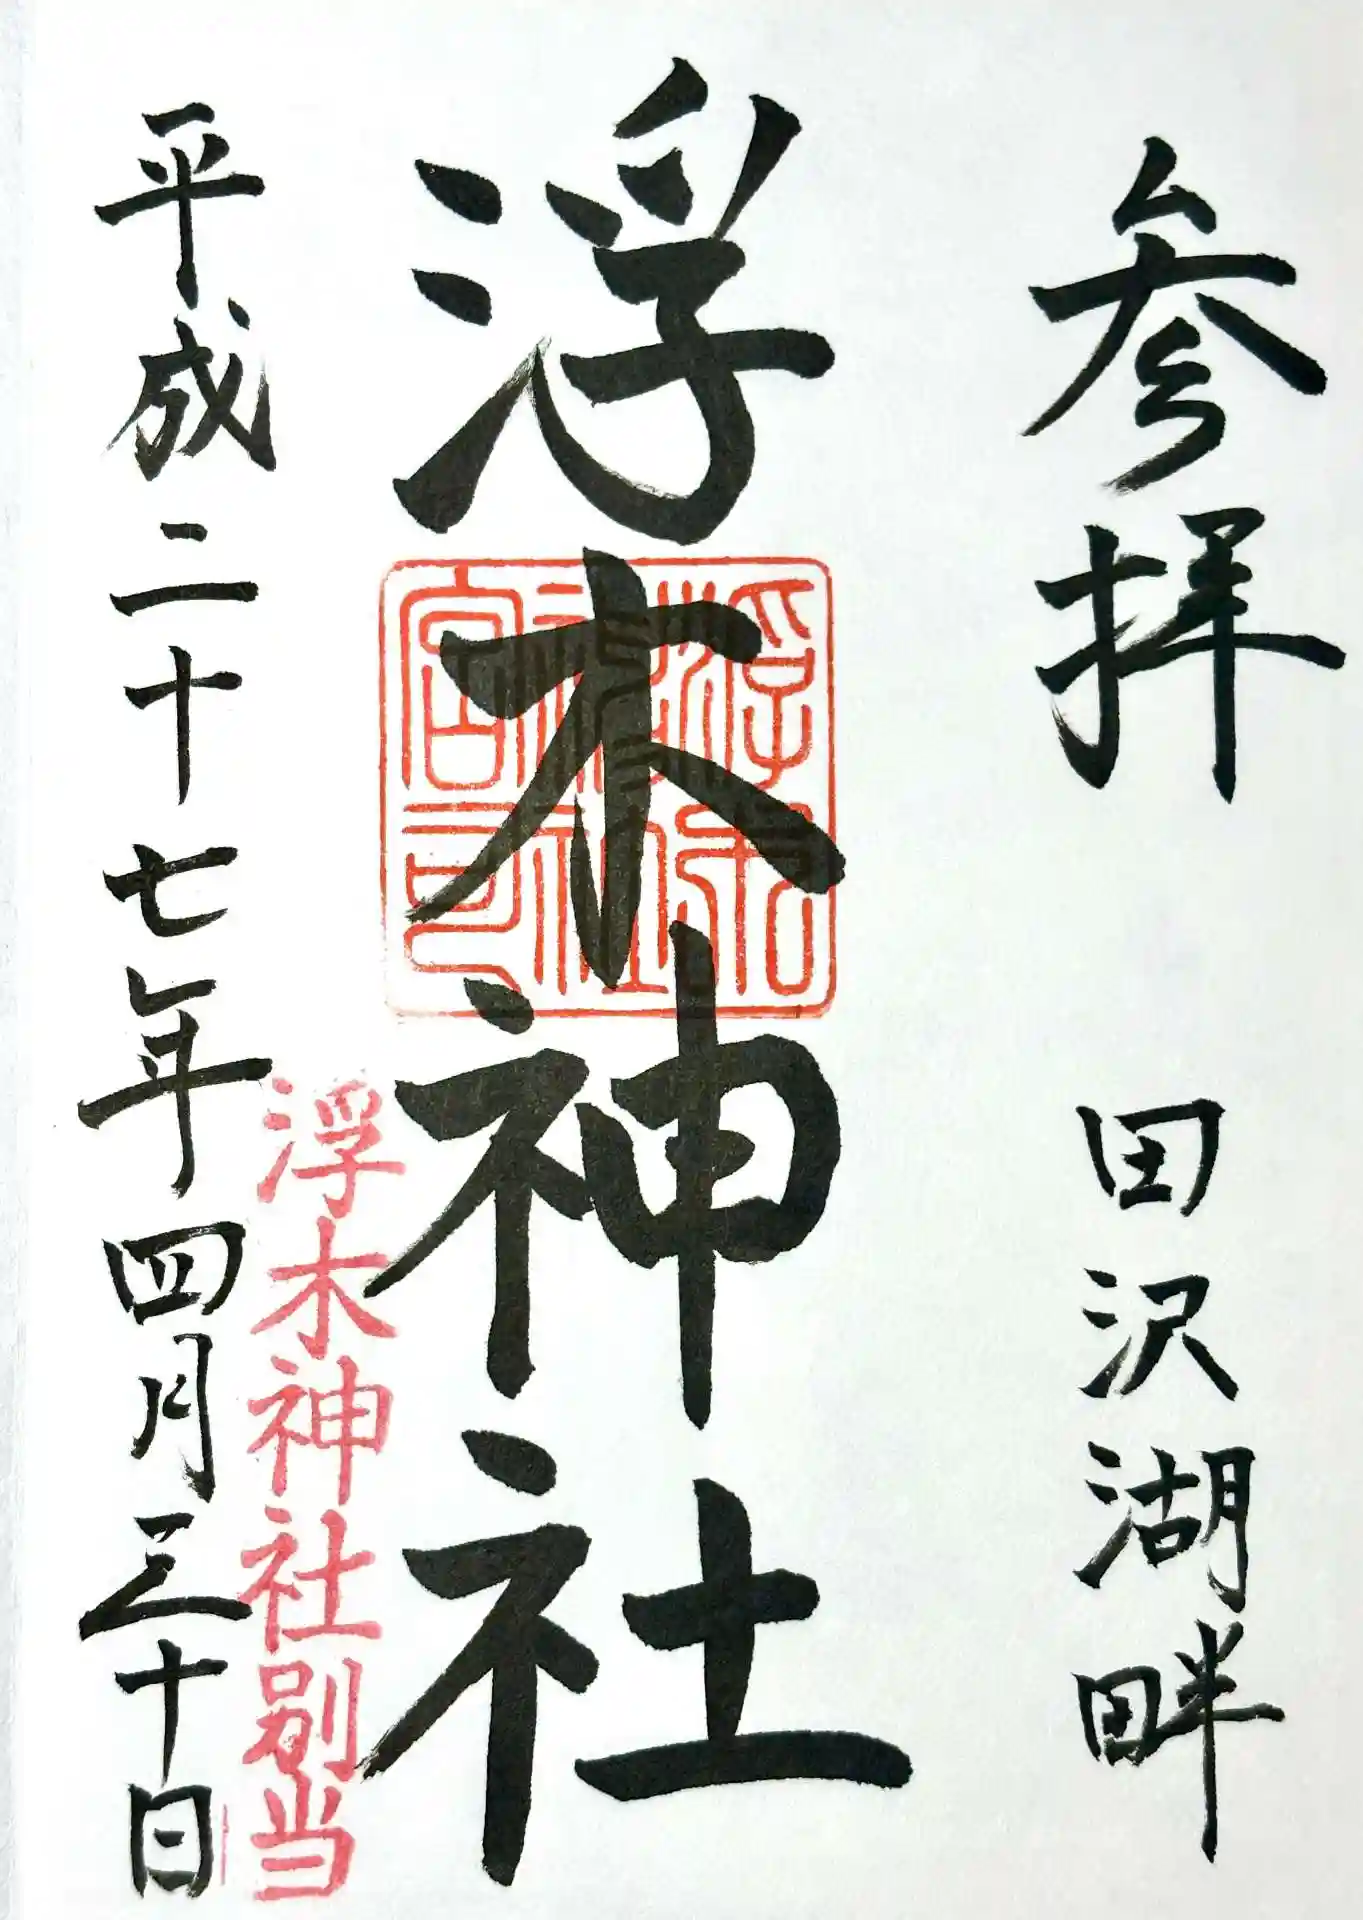 参拝 田沢湖畔
浮木神社
浮木神社宮司
浮木神社別当
平成二十七年四月三十日